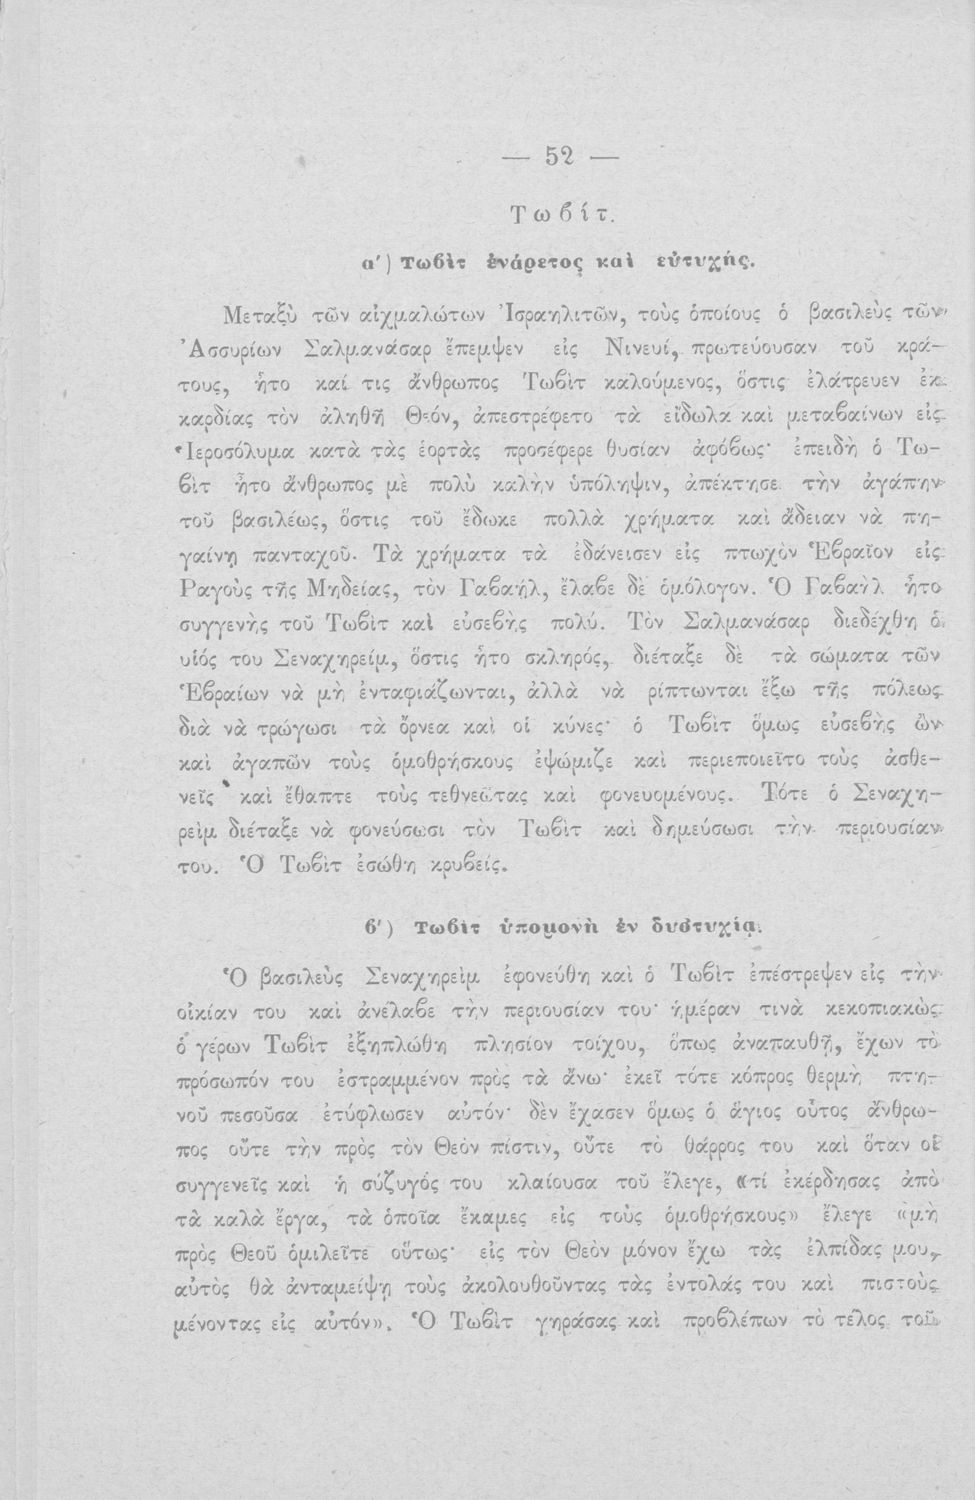 — 52 —
Τωβίτ.
α') Τωβὶτ ἐνάρετος καὶ εὐτυχής.
Μεταξὺ τῶν αἰχμαλώτων Ἰσραηλιτῶν, τοὺς ὁποίους ὁ βασιλεὺς τῶν
Ἀσσυρίων Σαλμανάσαρ ἔπεμψεν εἰς Νινευί, πρωτεύουσαν τοῦ κρά-
τους, ἦτο καί τις ἄνθρωπος Τωβὶτ καλούμενος, ὅστις ἐλάτρευεν ἐκ
καρδίας τὸν ἀληθῆ Θεόν, ἀπεστρέφετο τὰ εἴδωλα καὶ μεταβαίνων εἰς
Ἱεροσόλυμα κατὰ τὰς ἑορτὰς προσέφερε θυσίαν ἀφόβως· ἐπειδὴ ὁ Τω-
βὶτ ἦτο ἄνθρωπος μὲ πολὺ καλὴν ὑπόληψιν, ἀπέκτησε τὴν ἀγάπην
τοῦ βασιλέως, ὅστις τοῦ ἔδωκε πολλὰ χρήματα καὶ ἄδειαν νὰ πη-
γαίνῃ πανταχοῦ. Τὰ χρήματα τὰ ἐδάνεισεν εἰς πτωχὸν Ἑβραῖον εἰς
Ραγοὺς τῆς Μηδείας, τὸν Γαβαήλ, ἔλαβε δὲ ὁμόλογον. Ὁ Γαβαὴλ ἦτο
συγγενὴς τοῦ Τωβὶτ καὶ εὐσεβὴς πολύ. Τὸν Σαλμανάσαρ διεδέχθη ὁ
υἱός του Σεναχηρείμ, ὅστις ἦτο σκληρός, διέταξε δὲ τὰ σώματα τῶν
Ἑβραίων νὰ μὴ ἐνταφιάζωνται, ἀλλὰ νὰ ρίπτωνται ἔξω τῆς πόλεως
διὰ νὰ τρώγωσι τὰ ὄρνεα καὶ οἱ κύνες· ὁ Τωβὶτ ὅμως εὐσεβὴς ὢν
καὶ ἀγαπῶν τοὺς ὁμοθρήσκους ἐψώμιζε καὶ περιεποιεῖτο τοὺς ἀσθε-
νεῖς καὶ ἔθαπτε τοὺς τεθνεῶτας καὶ φονευομένους. Τότε ὁ Σεναχη-
ρεὶμ διέταξε νὰ φονεύσωσι τὸν Τωβὶτ καὶ δημεύσωσι τὴν περιουσίαν
του. Ὁ Τωβὶτ ἐσώθη κρυβείς.
β') Τωβὶτ ὑπομονὴ ἐν δυστυχίᾳ.
Ὁ βασιλεὺς Σεναχηρεὶμ ἐφονεύθη καὶ ὁ Τωβὶτ ἐπέστρεψεν εἰς τὴν
οἰκίαν του καὶ ἀνέλαβε τὴν περιουσίαν του· ἡμέραν τινὰ κεκοπιακὼς
ὁ γέρων Τωβὶτ ἐξηπλώθη πλησίον τοίχου, ὅπως ἀναπαυθῇ, ἔχων τὸ
πρόσωπόν του ἐστραμμένον πρὸς τὰ ἄνω· ἐκεῖ τότε κόπρος θερμὴ πτη-
νοῦ πεσοῦσα ἐτύφλωσεν αὐτόν· δὲν ἔχασεν ὅμως ὁ ἅγιος οὗτος ἄνθρω-
πος οὔτε τὴν πρὸς τὸν Θεὸν πίστιν, οὔτε τὸ θάρρος του καὶ ὅταν οἱ
συγγενεῖς καὶ ἡ σύζυγός του κλαίουσα τοῦ ἔλεγε, «τί ἐκέρδησας ἀπὸ
τὰ καλὰ ἔργα, τὰ ὁποῖα ἔκαμες εἰς τοὺς ὁμοθρήσκους» ἔλεγε «μὴ
πρὸς Θεοῦ ὁμιλεῖτε οὕτως· εἰς τὸν Θεὸν μόνον ἔχω τὰς ἐλπίδας μου,
αὐτὸς θὰ ἀνταμείψῃ τοὺς ἀκολουθοῦντας τὰς ἐντολάς του καὶ πιστοὺς
μένοντας εἰς αὐτόν». Ὁ Τωβὶτ γηράσας καὶ προβλέπων τὸ τέλος τοῦ